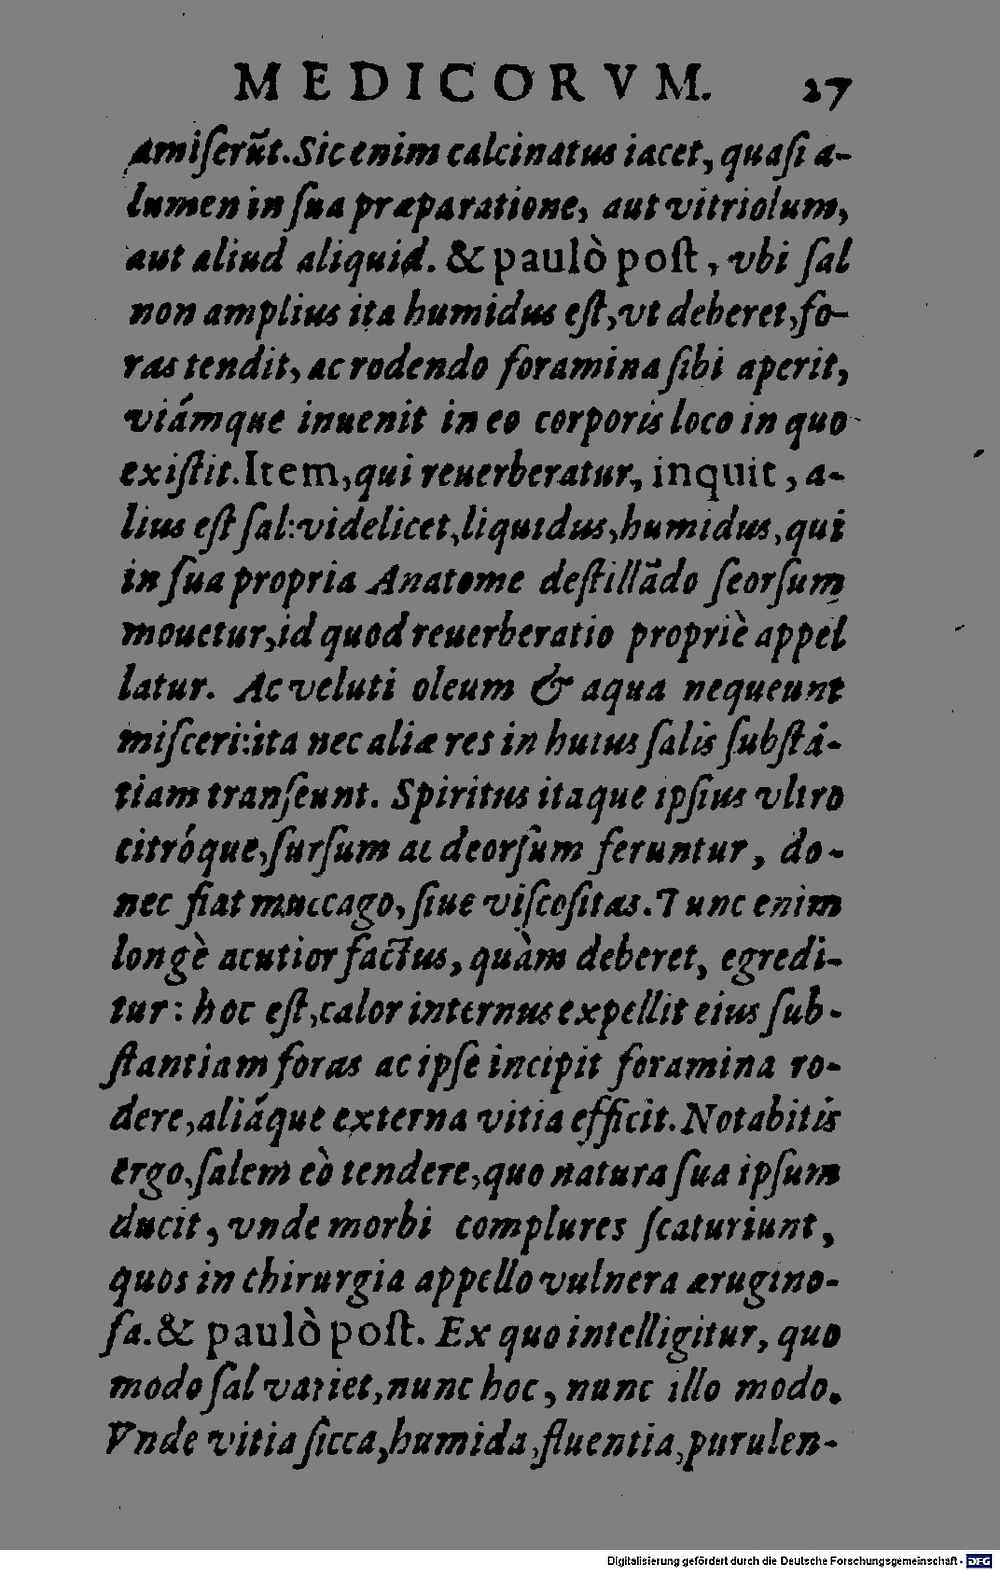 MEDICORVM. 27
amiſerũt. Sic enim calcinatus iacet, quaſi a-
lumen in ſua præparatione, aut vitriolum,
aut aliud aliquid. & paulò poſt, vbi ſal
non amplius ita humidus eſt, vt deberet, fo-
ras tendit, ac rodendo foramina ſibi aperit,
viámque inuenit in eo corporis loco in quo
exiſtit. Item, qui reuerberatur, inquit, a-
lius eſt ſal: videlicet, liquidus, humidus, qui
in ſua propria Anatome deſtillādo ſeorſum
mouetur, id quod reuerberatio propriè appel
latur. Ac veluti oleum & aqua nequeunt
miſceri: ita nec aliæ res in huius ſalis ſubſtā-
tiam tranſeunt. Spiritus itaque ipſius vltro
citróque, ſurſum ac deorſum feruntur, do-
nec fiat muccago, ſiue viſcoſitas. Tunc enim
longè acutior factus, quàm deberet, egredi-
tur: hoc eſt, calor internus expellit eius ſub-
ſtantiam foras ac ipſe incipit foramina ro-
dere, aliáque externa vitia efficit. Notabitis
ergo, ſalem eò tendere, quo natura ſua ipſum
ducit, vnde morbi complures ſcaturiunt,
quos in chirurgia appello vulnera ærugino-
ſa. & paulò poſt. Ex quo intelligitur, quo
modo ſal variet, nunc hoc, nunc illo modo.
Vnde vitia ſicca, humida, fluentia, purulen-
Digitalisierung gefördert durch die Deutsche Forschungsgemeinschaft - DFG